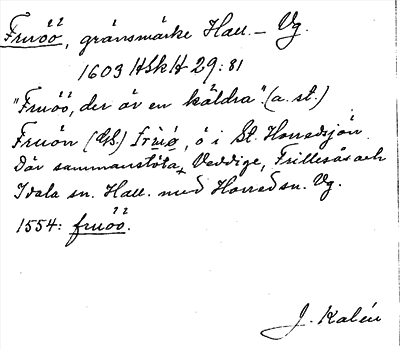 Fruöö, gränsmärke Hall. – Vg.
1603 HSkH 29:81
"Fruöö, der är en käldra". (a. st.)
Fruön (GS.) Frùø, ö i St. Horredsjön.
Där sammanstöta Veddige, Frillesås och
Idala sn. Hall. med Horred sn. Vg.
1554: fruöö.
J. Kalén